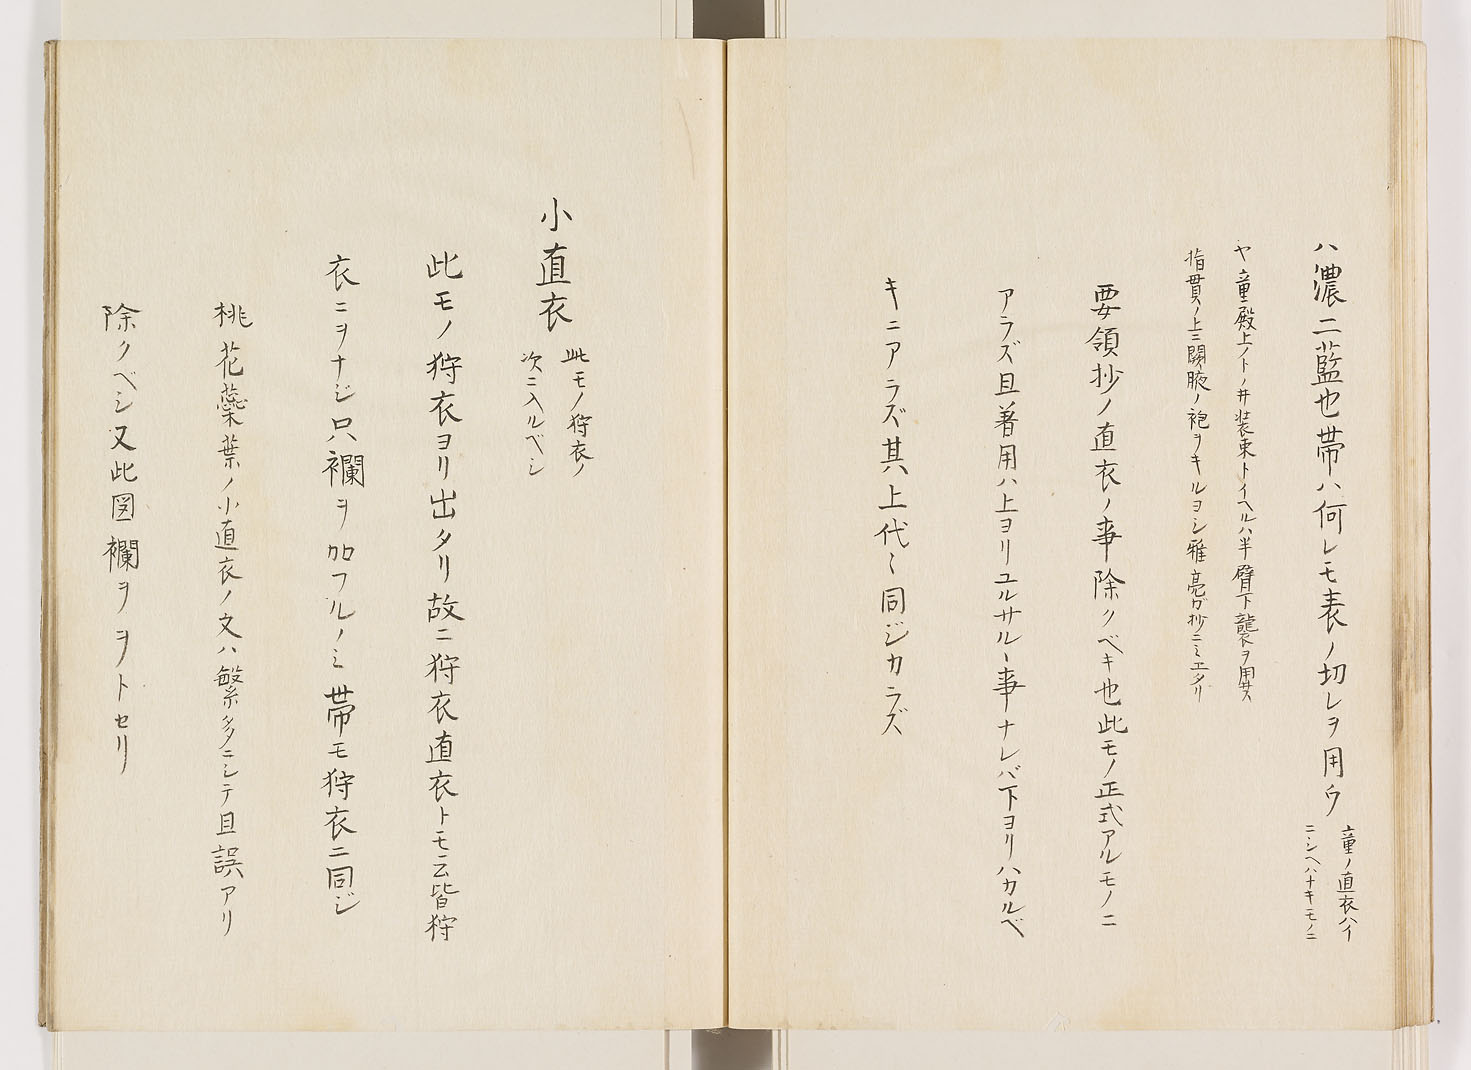 ハ濃二藍也帯ハ何レモ表ノ切レヲ用ウ
童ノ直衣ハイ
ニシヘハナキモノニ
ヤ童殿上ノトノ井装束トイヘルハ半臂下襲ヲ用井ス
指貫ノ上ニ闕腋ノ袍ヲキルヨシ雅亮ガ抄ニミエタリ
要領抄ノ直衣ノ事除クベキ也此モノ正式アルモノニ
アラズ且著用ハ上ヨリユルサルヽ事ナレバ下ヨリハカルベ
キニアラズ其上代〻同ジカラズ
小直衣
此モノ狩衣ノ
次ニ入ルベシ
此モノ狩衣ヨリ出タリ故ニ狩衣直衣トモ云皆狩
衣ニヲナジ只襴ヲ加フルノミ帯モ狩衣ニ同ジ
桃花蘂葉ノ小直衣ノ文ハ繁多ニシテ且誤アリ
除クベシ又此図襴ヲヲトセリ